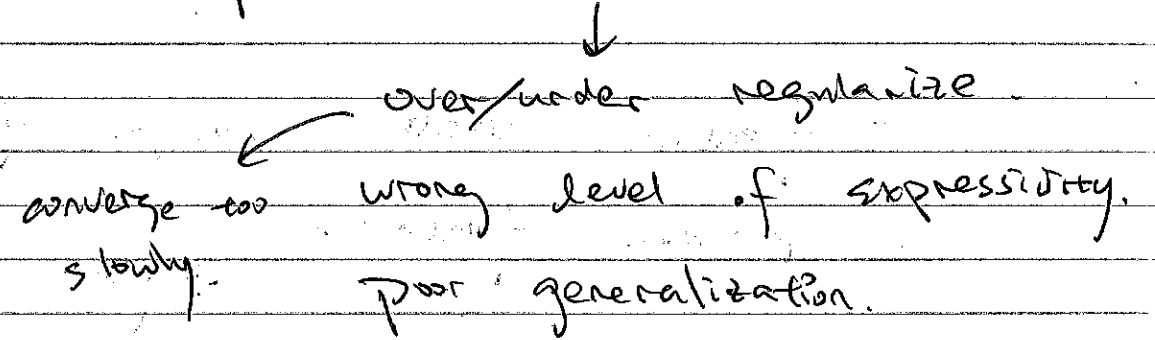 over/under regularize.
converge too wrong level of expressivity.
slowly. poor generalization.